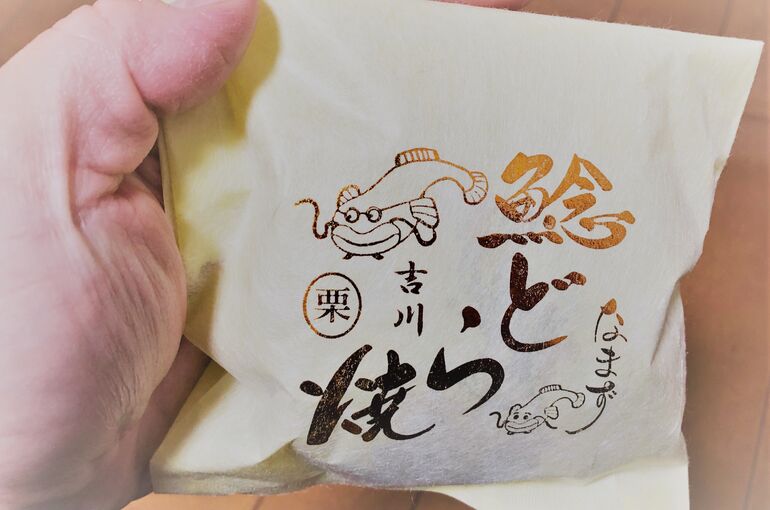 鯰どら焼
なまず
吉川
栗